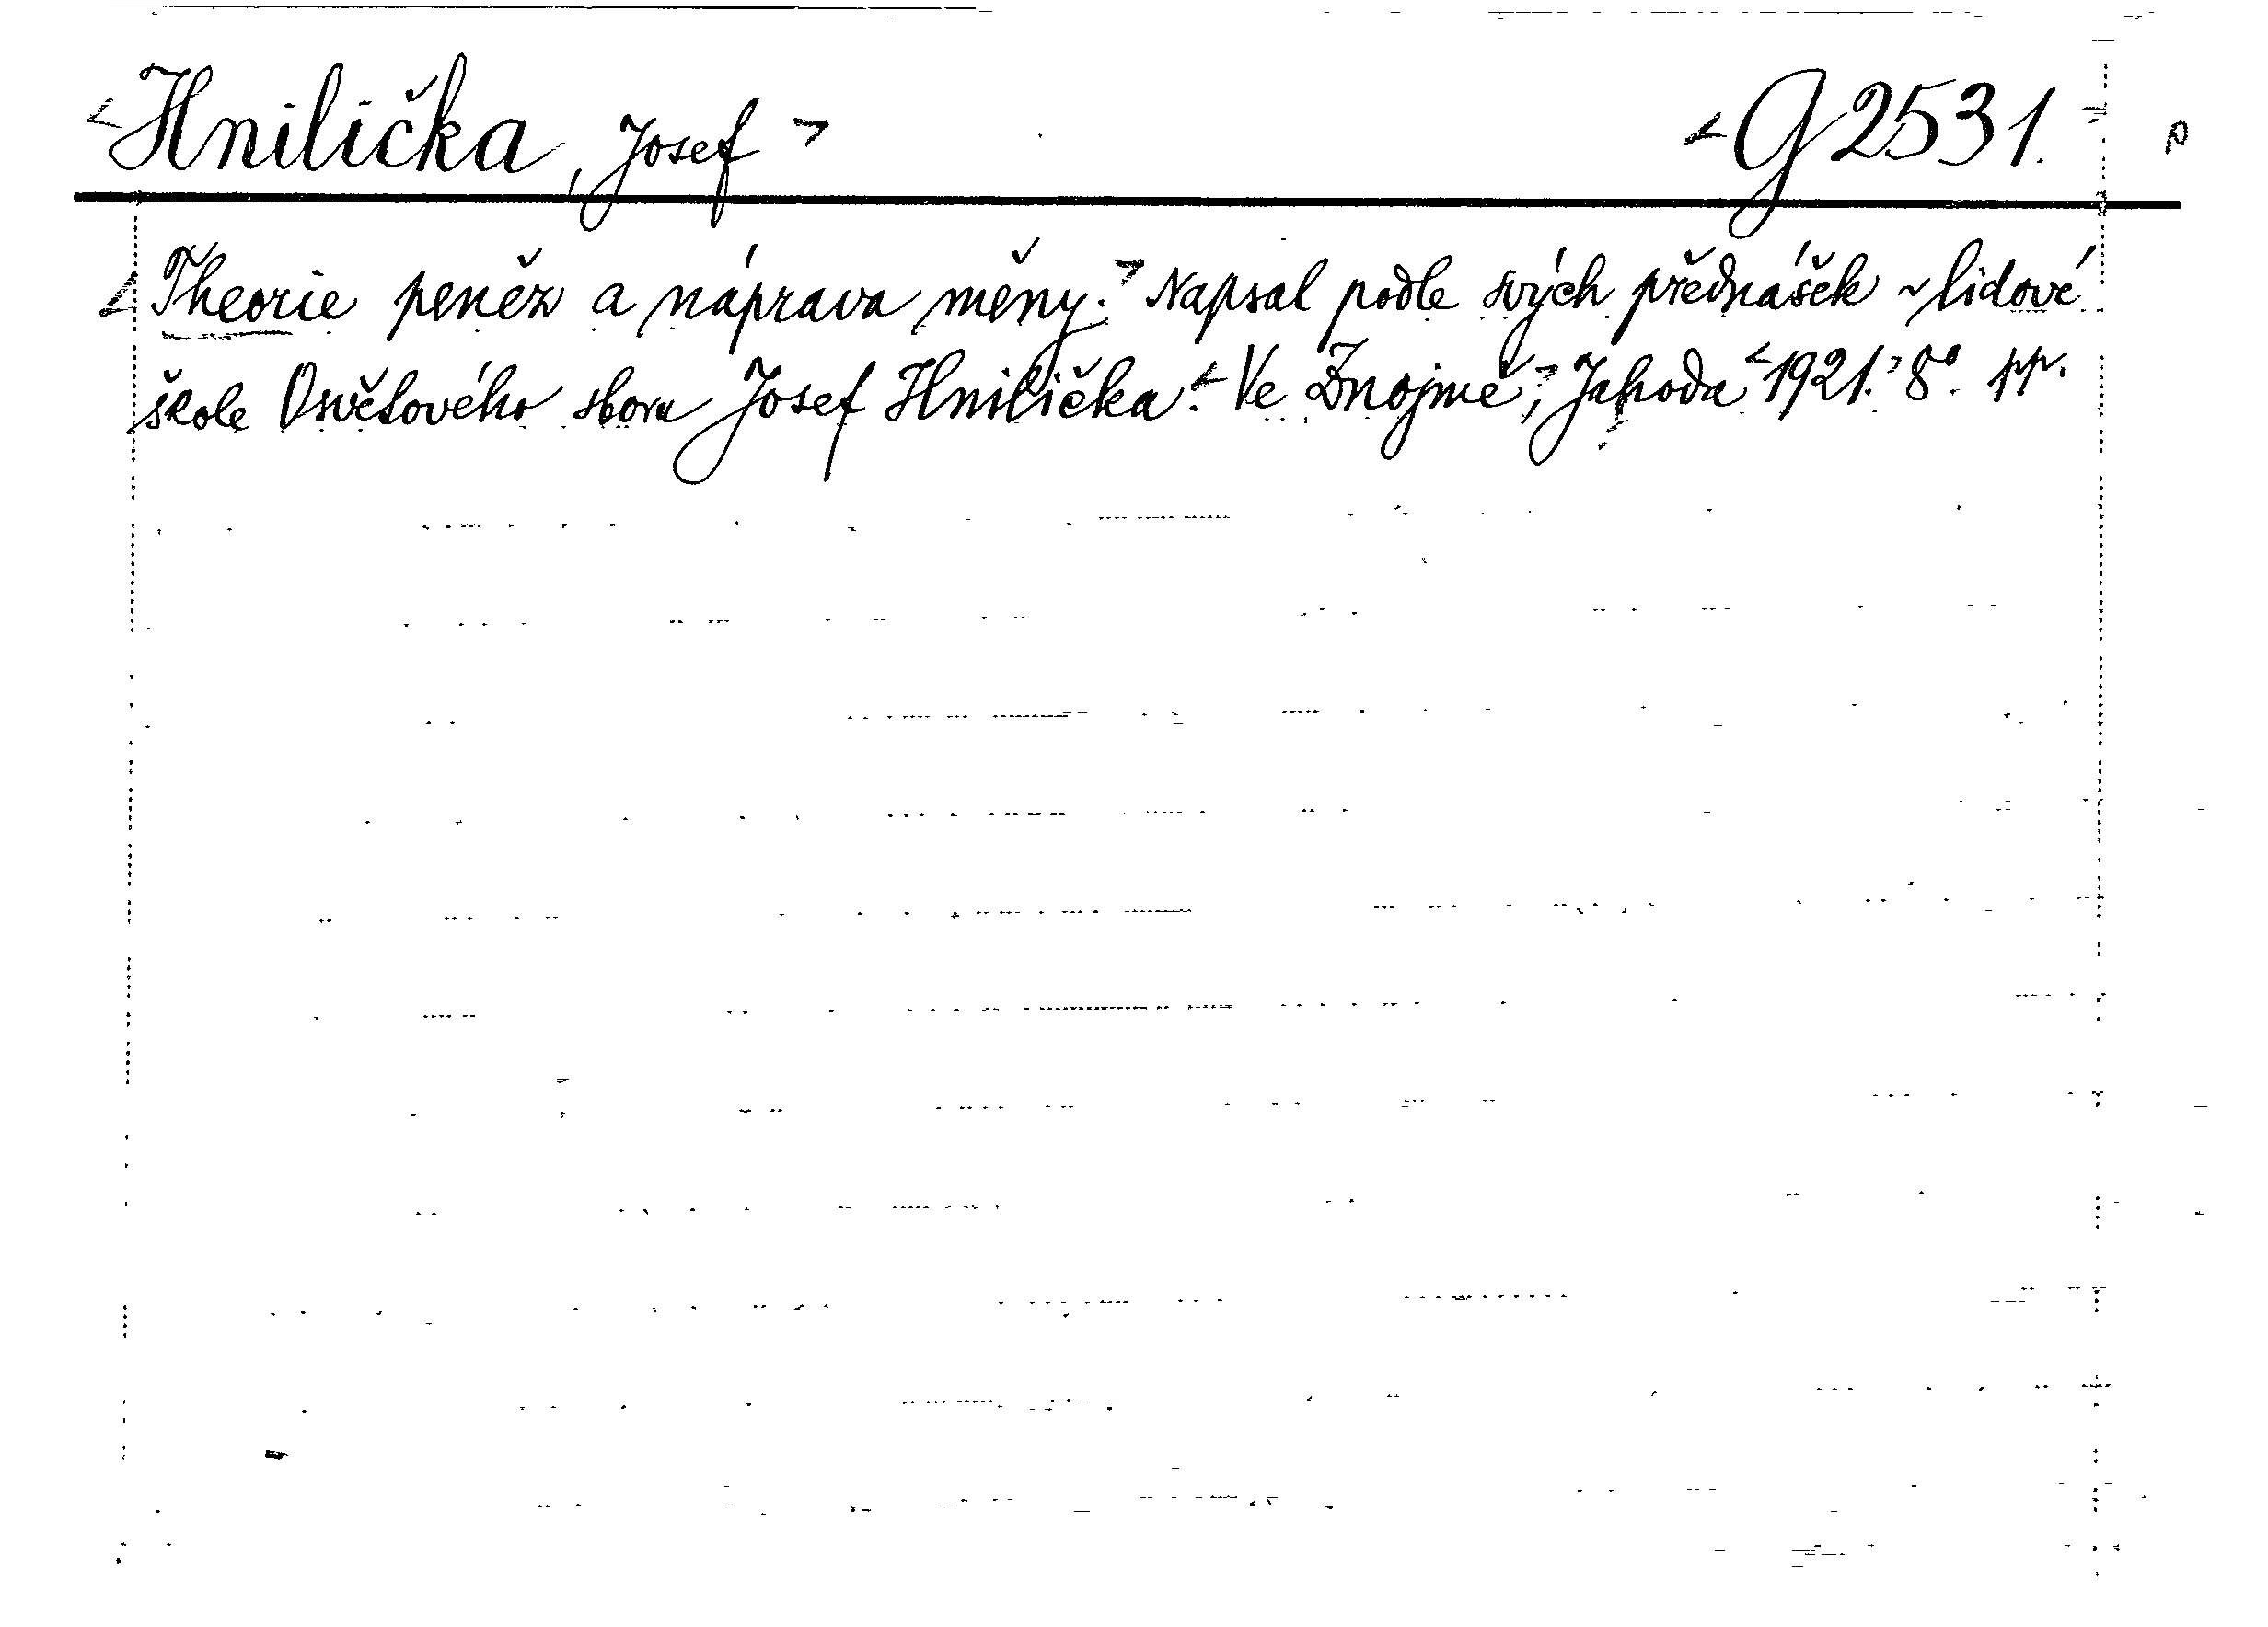 <Hnilička, Josef> <G 2531.>
<Theorie peněz a náprava měny.> Napsal podle svých přednášek v lidové
škole Osvětového sboru Josef Hnilička. <Ve Znojmě,> Jahoda <1921.> 8°. pp.